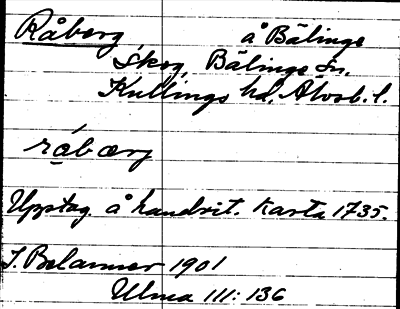 Råberg å Bälinge
skog, Bälinge sn.
Kullings hd, Älvsb. l.
råbærg
Upptag. å handrit. karta 1735.
1901
Ulma 111: 136